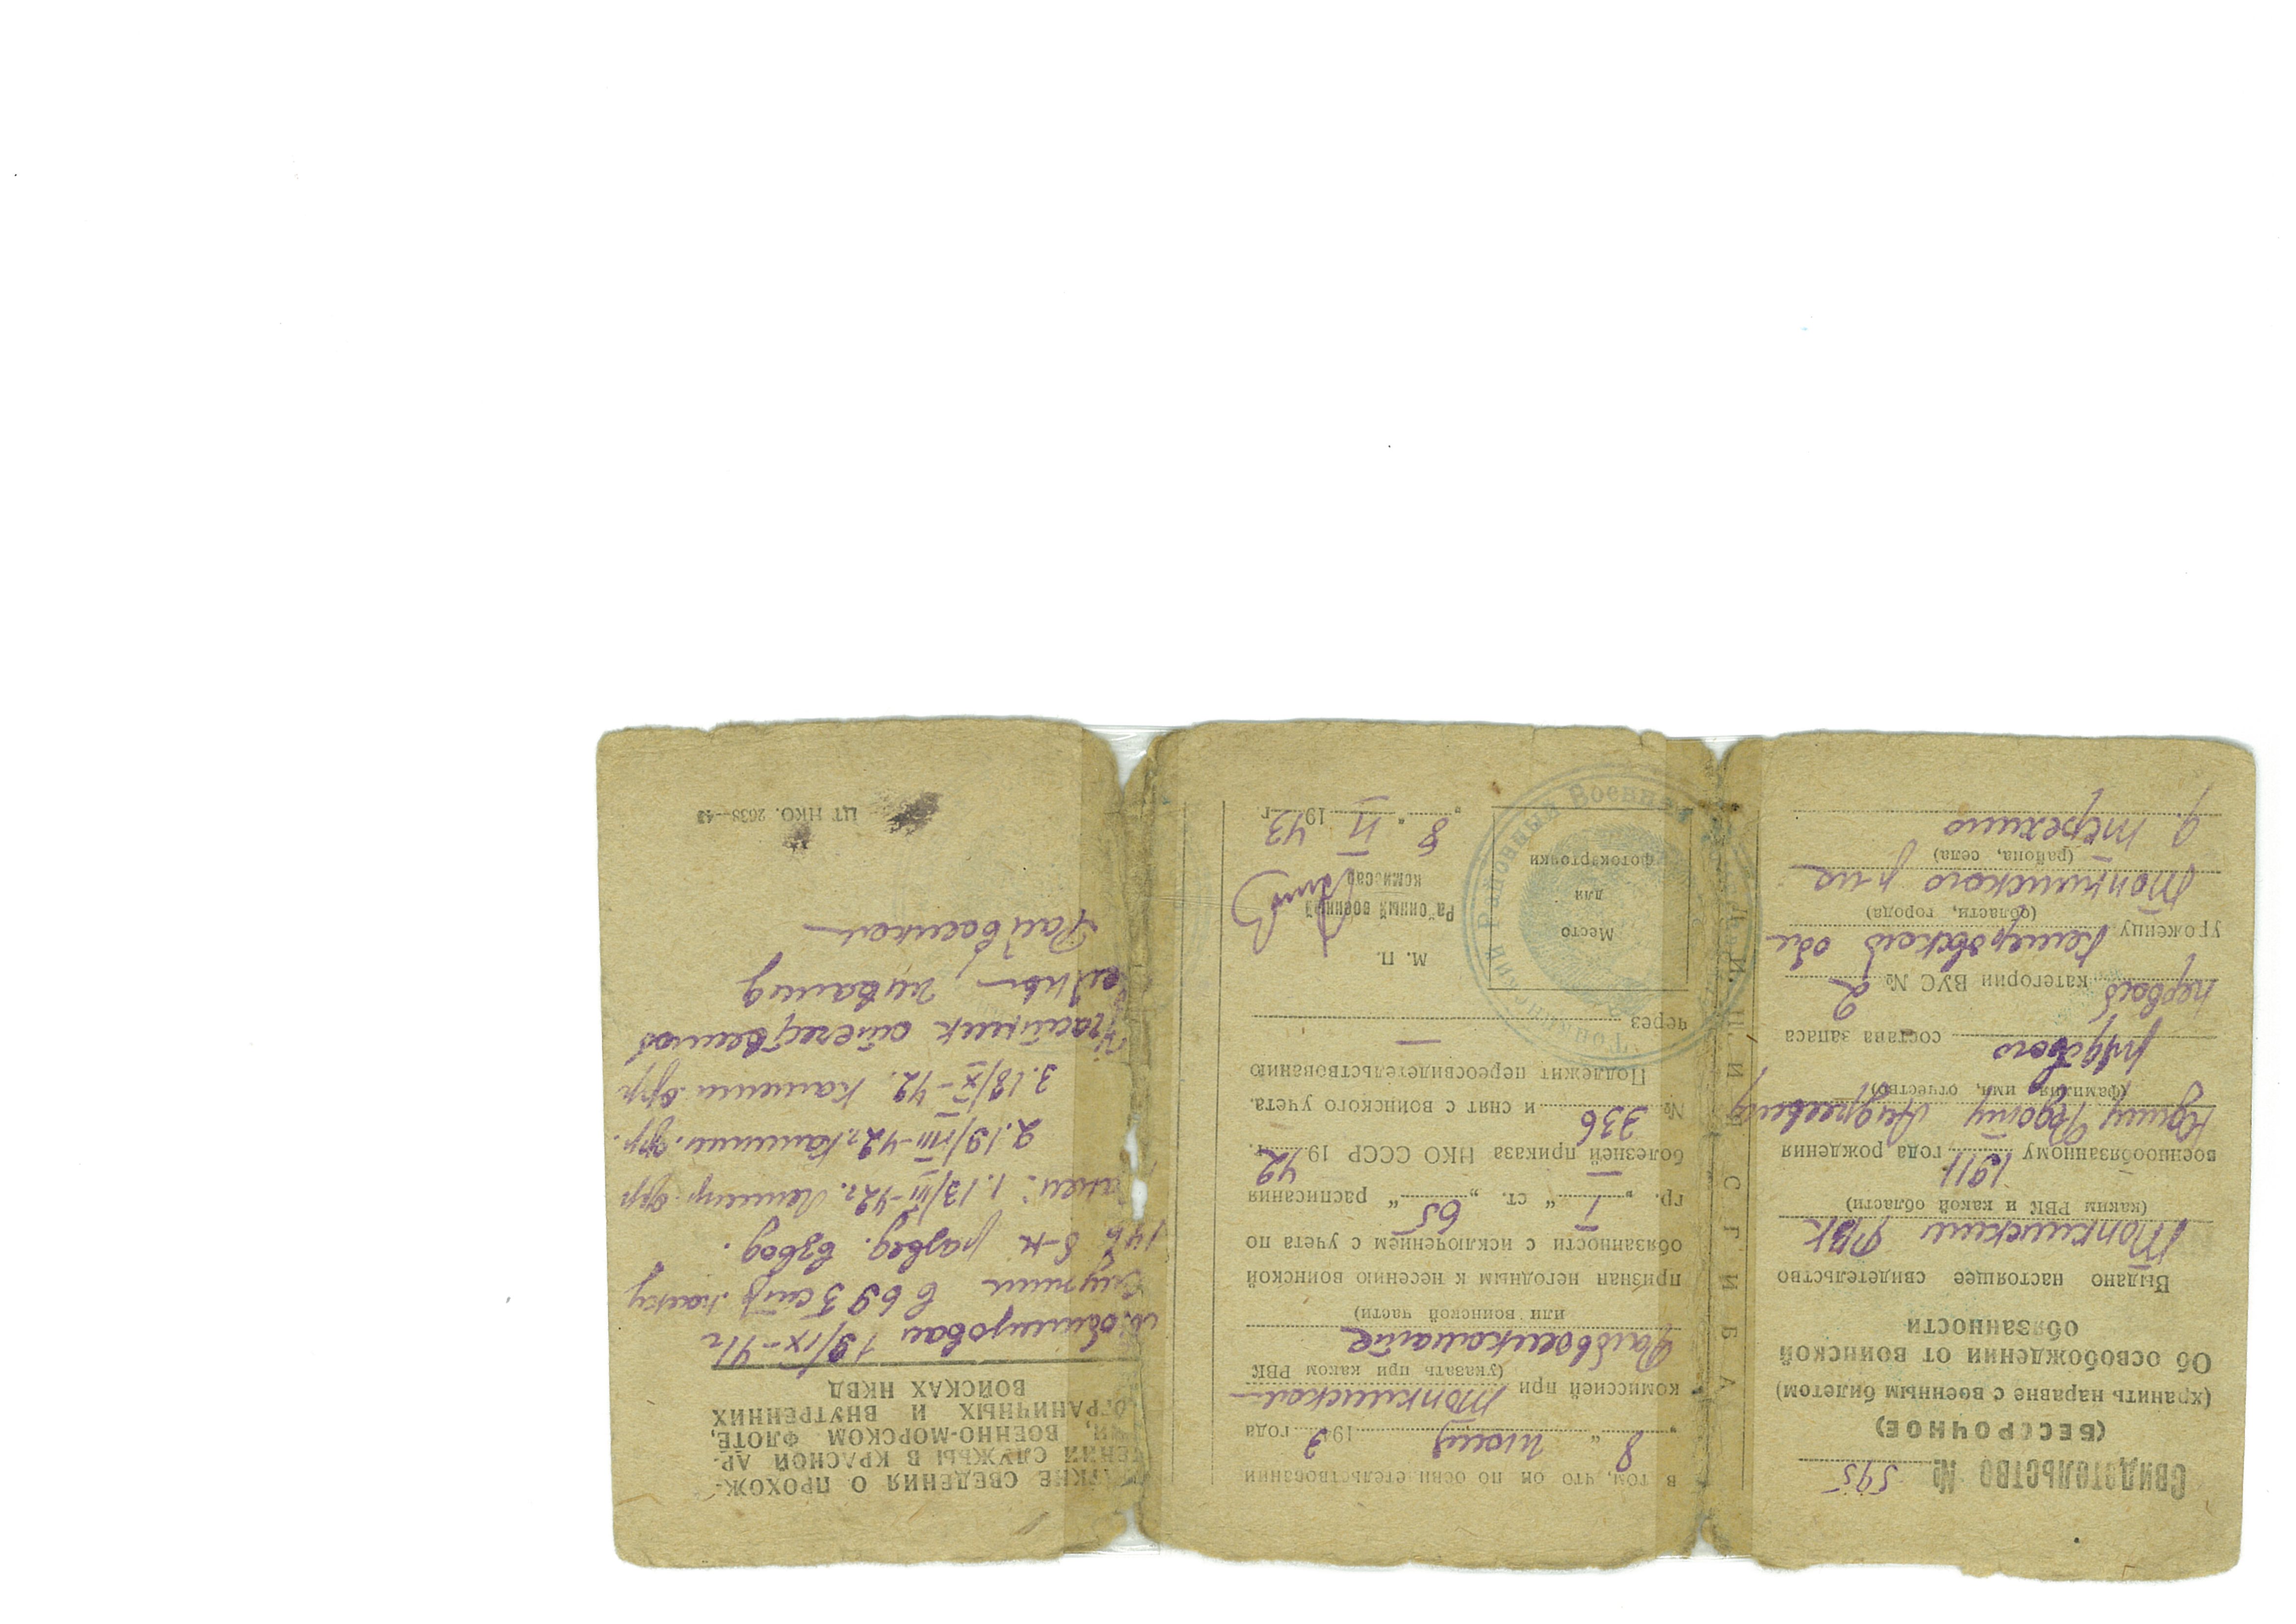 Свидетельство № 595
(БЕССРОЧНОЕ)
(хранить наравне с военным билетом)
Об освобождении от воинской
обязанности
Выдано настоящее свидетельство
Топкинский РВК
(каким РВК и какой области)
военнообязанному 1911 года рождения
Андреевичу
(фамилия, имя, отчество)
рядового состава запаса
первой категории ВУС № 2
уроженцу Кемеровской обл
(области, города)
Топкинского р-на
(района, села)
д. Терехино
ЛИНИЯ СГИБА
в том, что он по освидетельствовании
„8“ июня 1943 года
комиссией при Топкинском
(указать при каком РВК
Райвоенкомате
или воинской части)
признан негодным к несению воинской
обязанности с исключением с учета по
гр. „I“ ст. „65“ расписания
болезней приказа НКО СССР 1942 г.
№ 336 и снят с воинского учета.
Подлежит переосвидетельствованию
через —
Место
для
фотокарточки
М. П.
Районный военный
комиссар
19 43 г.
Топкинский Районный Военный
КРАТКИЕ СВЕДЕНИЯ О ПРОХОЖ-
ДЕНИИ СЛУЖБЫ В КРАСНОЙ АР-
МИИ, ВОЕННО-МОРСКОМ ФЛОТЕ,
ПОГРАНИЧНЫХ И ВНУТРЕННИХ
ВОЙСКАХ НКВД
Мобилизован 19/IX-41г
Служил в 693 стр. полку
б-н развед. взвод.
Ранен: 1. 13/III-42г. Ленингр. фр
2. 19/VIII-42г. Калинин. фр.
3. 18/X-42. Калинин. фр
Участник отечественной
войны, инвалид
Райвоенком
ЦТ НКО. 2638—43